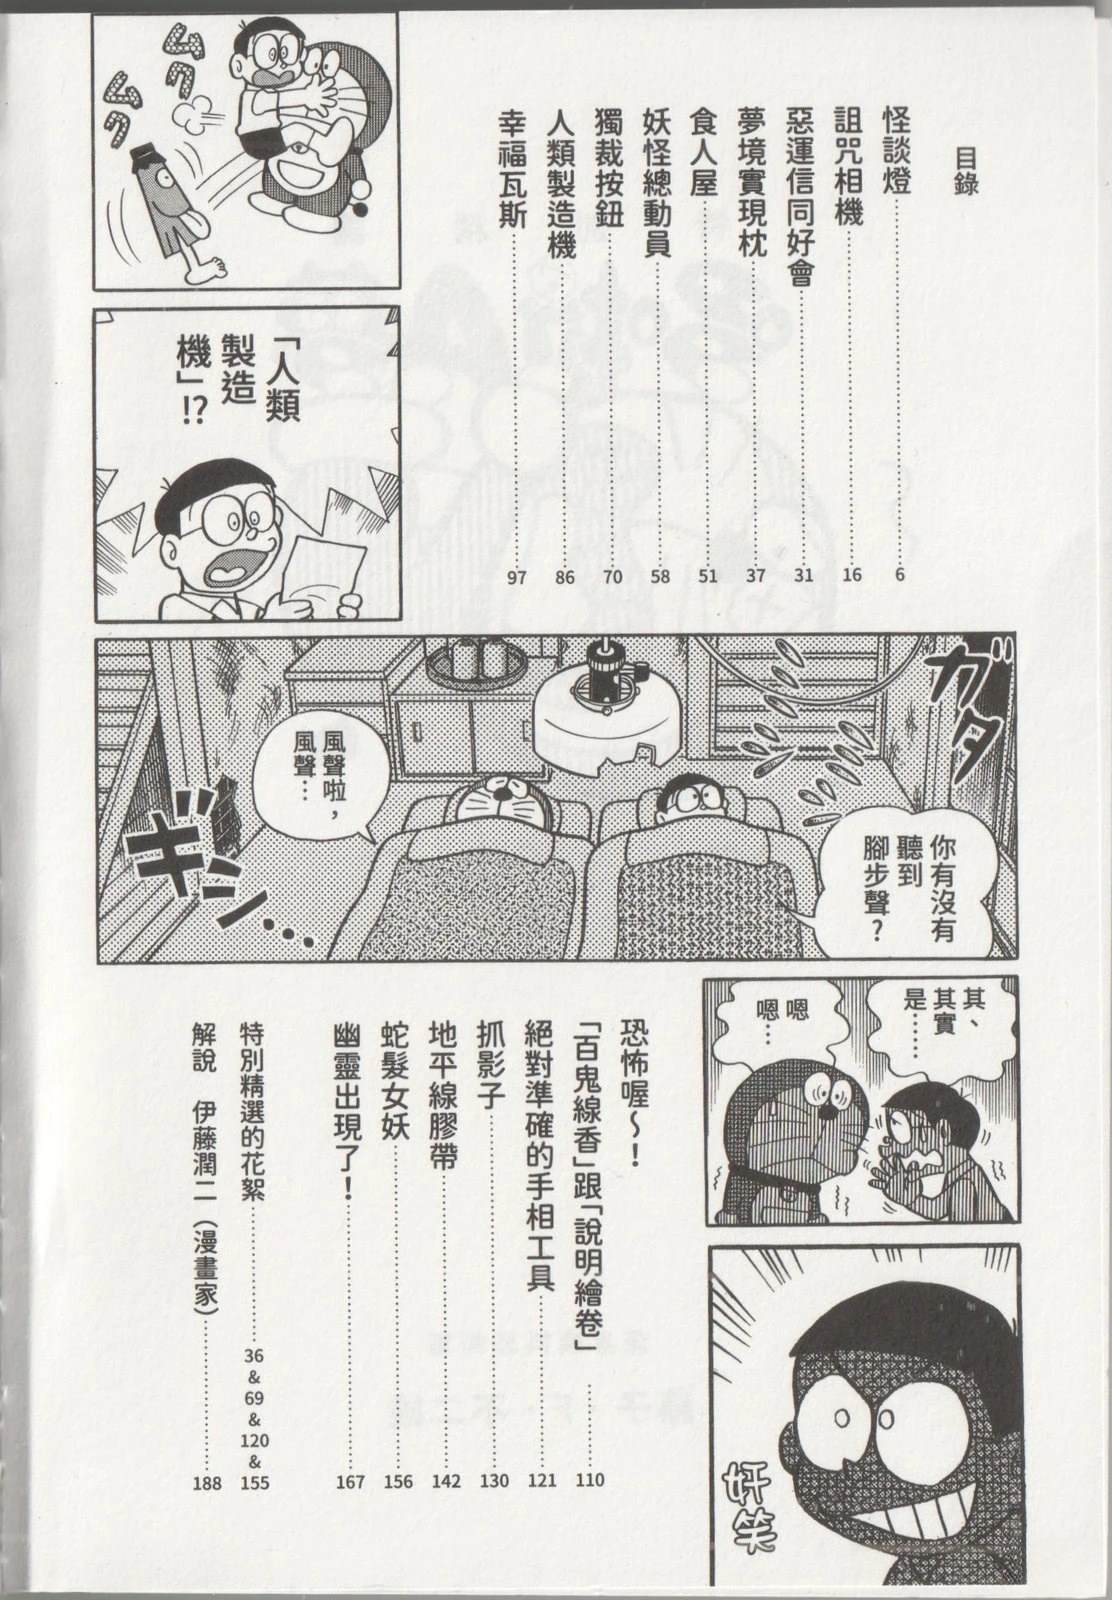 目錄
怪談燈………6
詛咒相機………16
惡運信同好會………31
夢境實現枕………37
食人屋………51
妖怪總動員………58
獨裁按鈕………70
人類製造機………86
幸福瓦斯………97
ムク
ムク
「人類
製造
機」!?
ガタ
你有沒有
聽到
腳步聲？
風聲啦，
風聲…
ギシ…
其、
其實
是……
嗯
嗯…
奸笑
恐怖喔～！
「百鬼線香」跟「說明繪卷」………110
絕對準確的手相工具………121
抓影子………130
地平線膠帶………142
蛇髮女妖………156
幽靈出現了！………167
特別精選的花絮………36&69&120&155
解說　伊藤潤二（漫畫家）………188